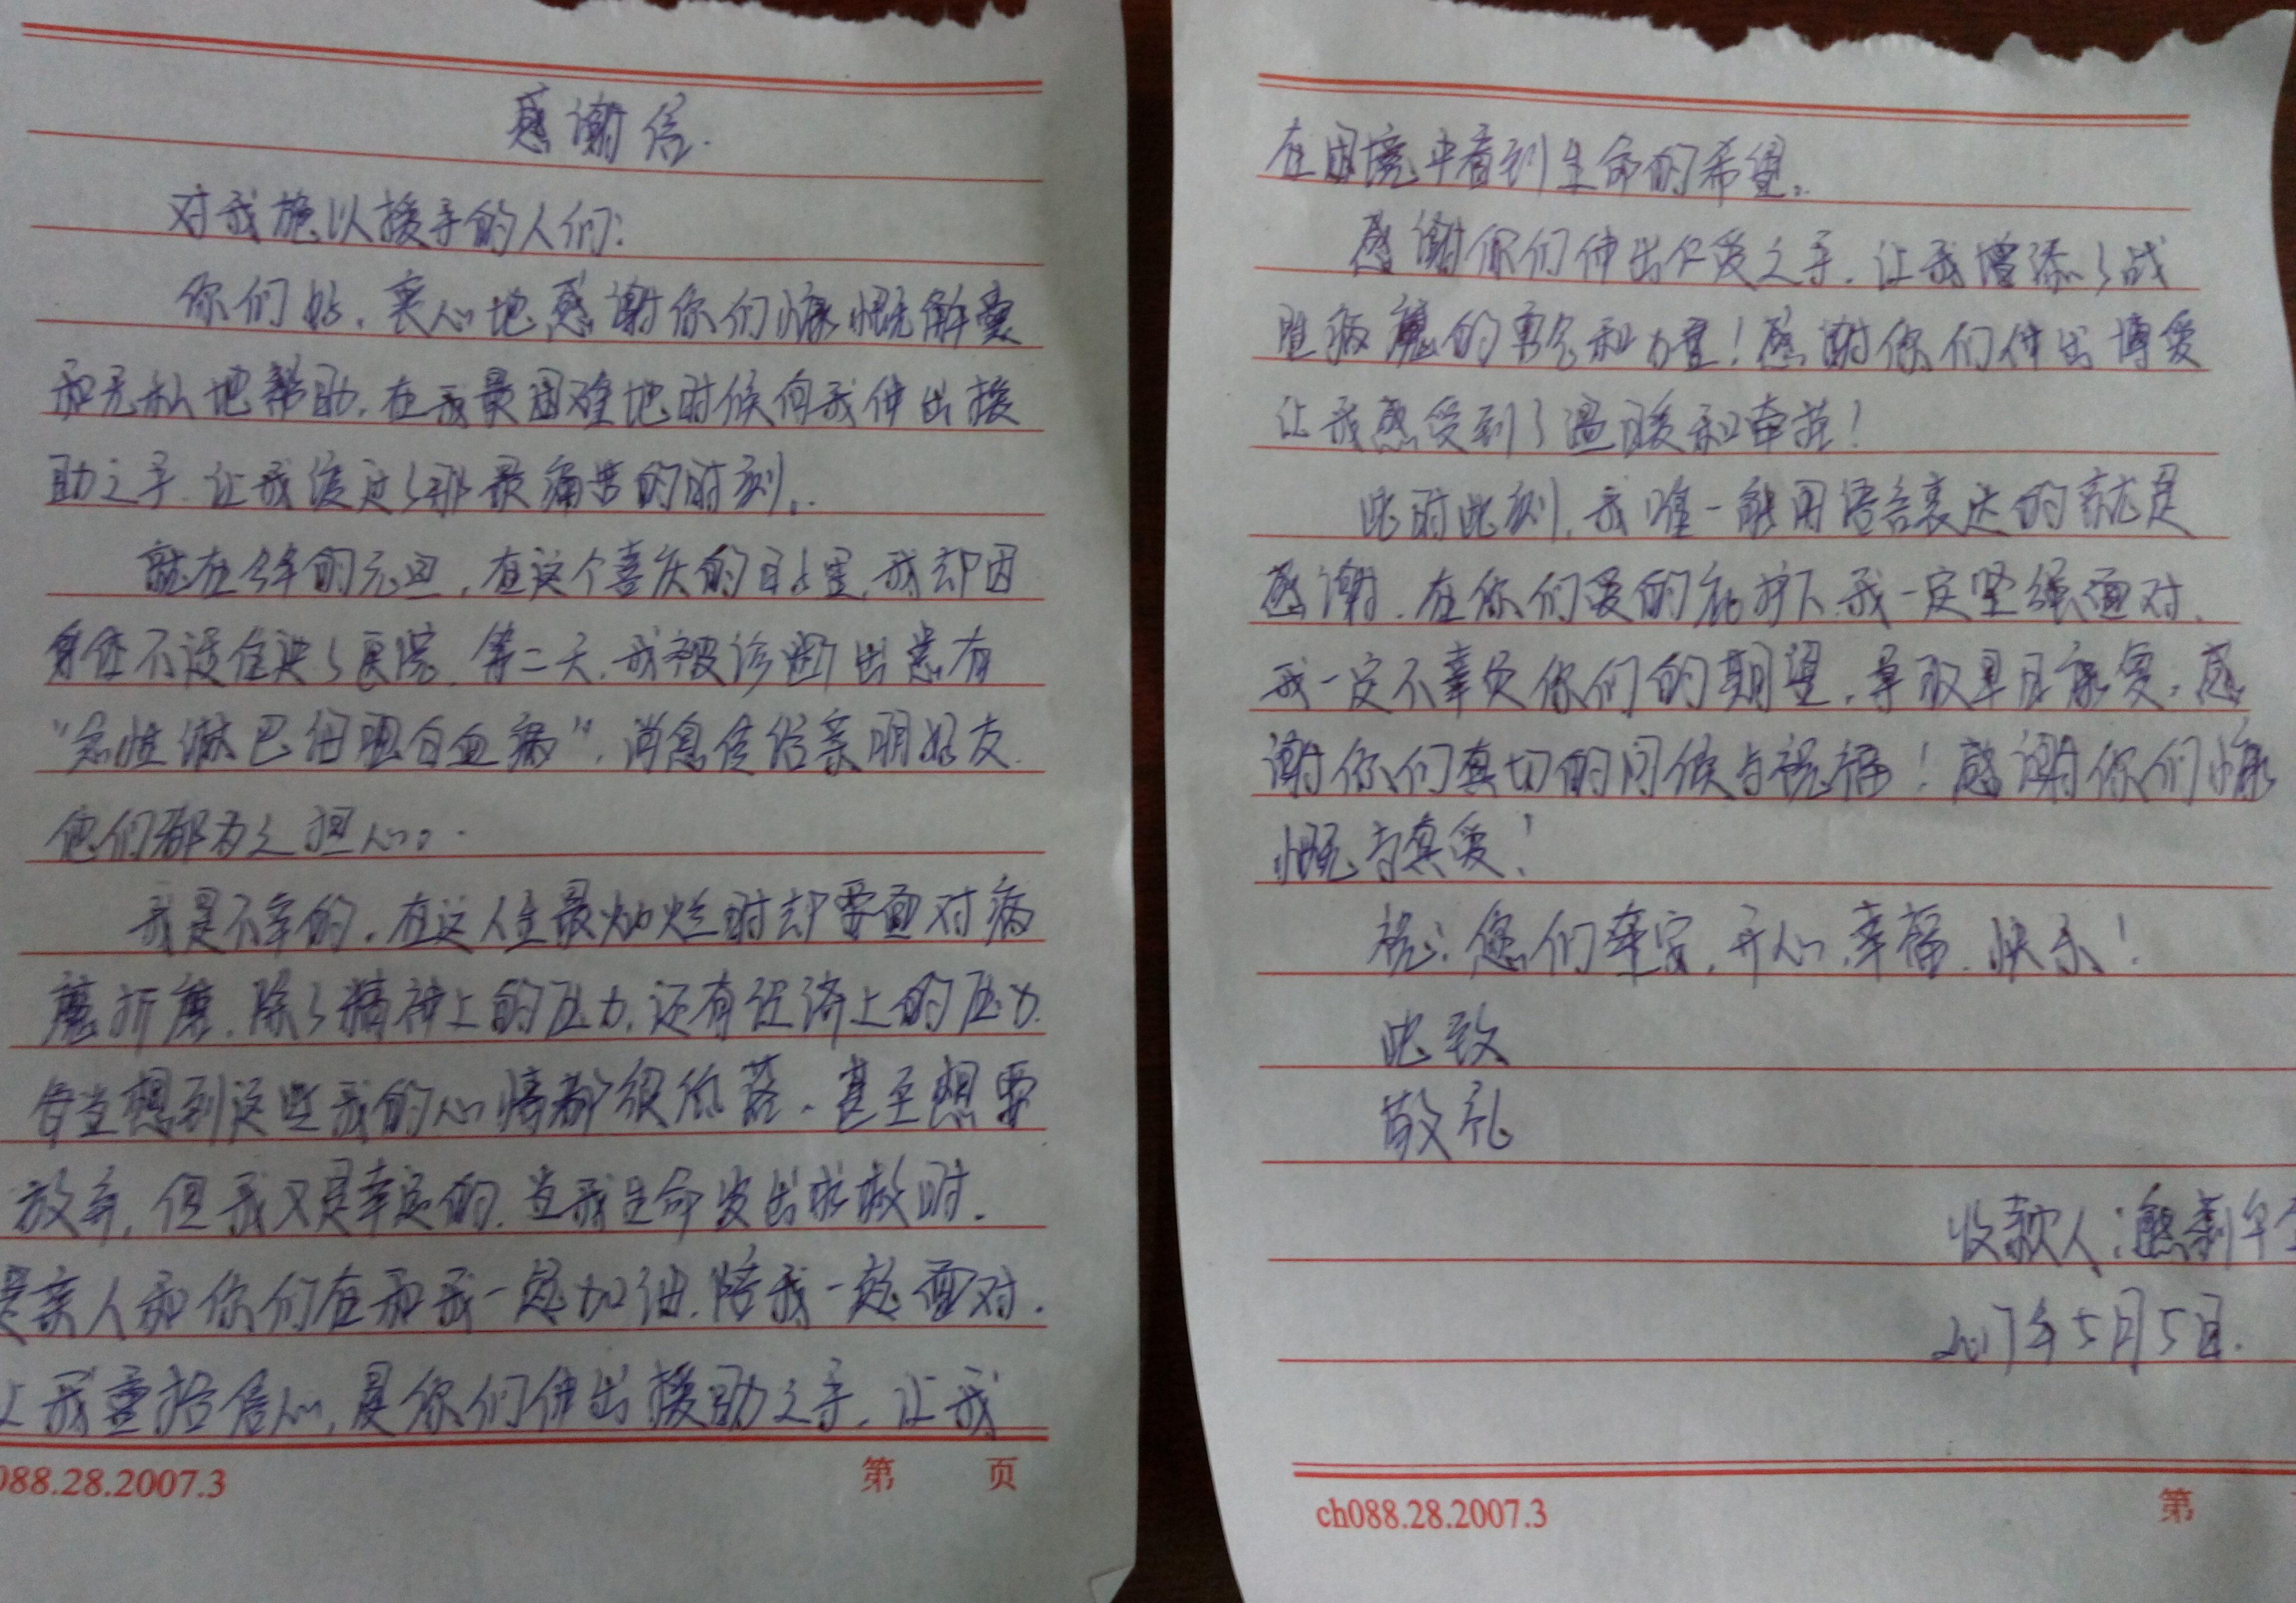 感谢信.
对我施以援手的人们:
你们好,衷心地感谢你们慷慨解囊
和无私地帮助,在我最困难地时候向我伸出援
助之手,让我度过了那最痛苦的时刻。
就在今年的元旦,在这个喜庆的日子里,我却因
身体不适住进了医院,第二天,我被诊断出患有
“急性淋巴细胞白血病”,消息传给亲朋好友,
他们都为之担心。
我是不幸的,在这人生最灿烂时却要面对病
魔折磨,除了精神上的压力,还有经济上的压力,
每当想到这些我的心情都很低落,甚至想要
放弃,但我又是幸运的,当我生命发出求救时,
是亲人和你们在和我一起加油,陪我一起面对,
让我重拾信心,是你们伸出援助之手,让我
088.28.2007.3
第 页
在困境中看到生命的希望。
感谢你们伸出仁爱之手,让我增添了战
胜病魔的勇气和力量!感谢你们伸出博爱
让我感受到了温暖和牵挂!
此时此刻,我唯一能用语言表达的就是
感谢,在你们爱的庇护下,我一定坚强面对,
我一定不辜负你们的期望,争取早日康复,感
谢你们真切的问候与祝福!感谢你们慷
慨与真爱!
祝:您们平安,开心,幸福,快乐!
此致
敬礼
收款人:熊
2017年5月5日.
ch088.28.2007.3
第